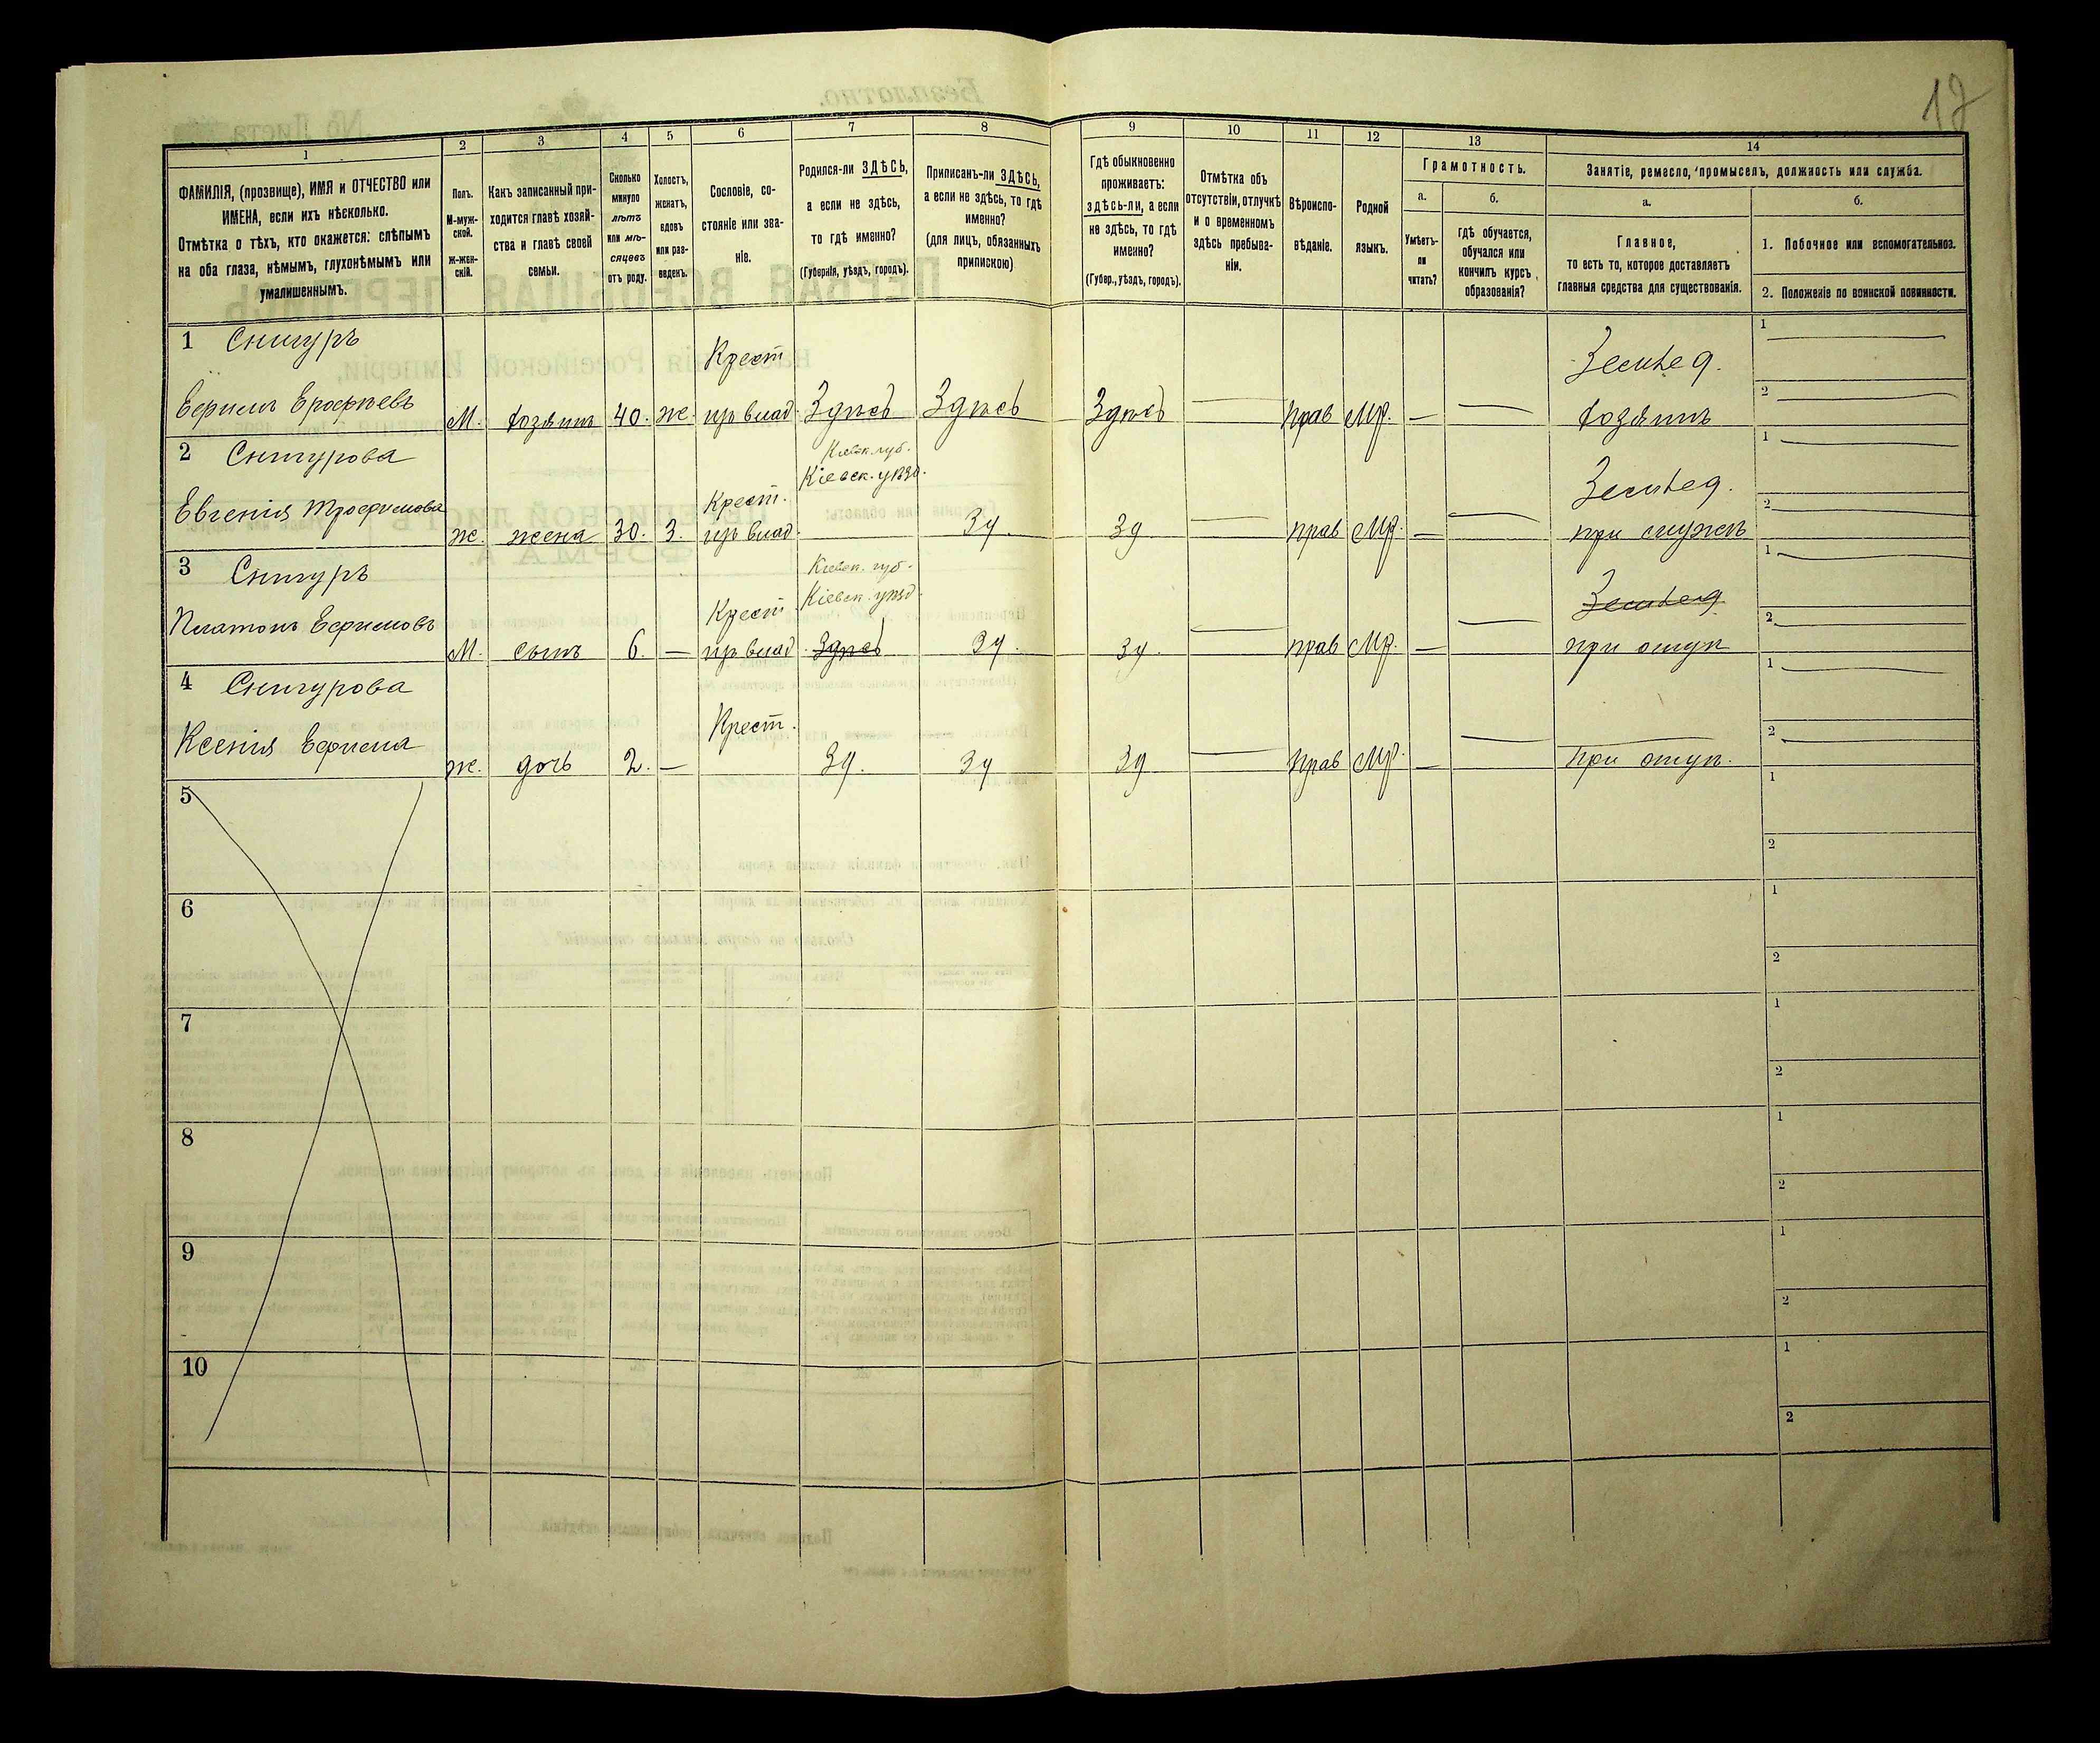 12
1
2
3
4
5
6
7
8
9
10
11
12
13
14
ФАМИЛІЯ, (прозвище), ИМЯ и ОТЧЕСТВО или
ИМЕНА, если ихъ нѣсколько.
Отмѣтка о тѣхъ, кто окажется: слѣпымъ
на оба глаза, нѣмымъ, глухонѣмымъ или
умалишеннымъ.
Полъ.
М-муж-
ской.
Ж-жен-
скій.
Какъ записанный при-
ходится главѣ хозяй-
ства и главѣ своей
семьи.
Сколько
минуло
лѣтъ
или мѣ-
сяцевъ
отъ роду.
Холостъ,
женатъ,
вдовъ
или раз-
веденъ.
Сословіе, со-
стояніе или зва-
ніе.
Родился-ли ЗДѢСЬ,
а если не здѣсь,
то гдѣ именно?
(Губернія, уѣздъ, городъ).
Приписанъ-ли ЗДѢСЬ,
а если не здѣсь, то гдѣ
именно?
(для лицъ, обязанныхъ
припискою)
Гдѣ обыкновенно
проживаетъ:
здѣсь-ли, а если
не здѣсь, то гдѣ
именно?
(Губер., уѣздъ, городъ).
Отмѣтка объ
отсутствіи, отлучкѣ
и о временномъ
здѣсь пребыва-
ніи.
Вѣроиспо-
вѣданіе.
Родной
языкъ.
Грамотность.
а.
Умѣетъ-
ли
читать?
б.
гдѣ обучается,
обучался или
кончилъ курсъ
образованія?
Занятіе, ремесло, промыселъ, должность или служба.
а.
Главное,
то есть то, которое доставляетъ
главныя средства для существованія.
б.
1. Побочное или вспомогательное.
2. Положеніе по воинской повинности.
1 Снигуръ Крест Землед. 1
Ефимъ Ерофѣевъ М. хозяинъ 40. ж. пр влад. Здѣсь Здѣсь Здѣсь — прав Мр. — — хозяинъ 2
2 Снигурова Кіевск. губ. 1
Кіевск. уѣзд.
Евгенія Трофимова Крест. Землед.
ж. жена 30. З. пр влад. Зд. Зд — прав Мр. — — при мужѣ 2
3 Снигуръ Кіевск. губ. 1
Крест Кіевск. уѣзд. Землед
Платонъ Ефимовъ М. сынъ 6. — пр влад. Здѣсь Зд. Зд. — прав Мр. — — при отцѣ 2
4 Снигурова 1
Крест.
Ксенія Ефима ж. дочь 2. — Зд. Зд Зд — прав Мр. — — при отцѣ. 2
5 1
2
6 1
2
7 1
2
8 1
2
9 1
2
10 1
2